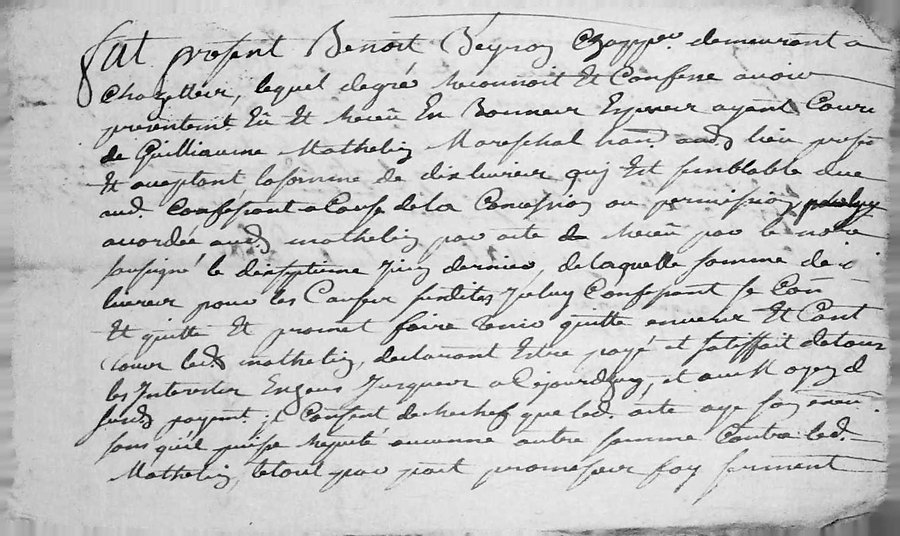 fut present Benoit Beyron chappr. demeurant a
Chazelleur, lequel degré reconnoit Et Confesse avoir
presentemt. Eü Et Receü En Bonneur Espesseur ayant Cour
de Guilliaume Mathelin Mareschal aud. lieu present
Et aceptant lasomme de dix livrer quy Est semblable due
aud. Confessant a Cause de la Concession ou permission par luy
accordée aud. mathelin par acte Receü par le notre
sousigné le dixseptieme Juin dernier, de laquelle somme de dix
livrer pour les Causer susdites Iceluy Confessant se Con
Et quitte Et promet faire tenir quitte enverr Et Cont
tour led. mathelin, declarant Estre payé et satisffait de tour
les Interestz Jusqueur a Cejourdhuy, et au moyen d
susd. payemt. Consent derechef que led. acte aye son exeu.
sans qu'il puisse Repeté aucunne autre somme Contre led.
Mathelin, le tout par pact promesseur foy serment